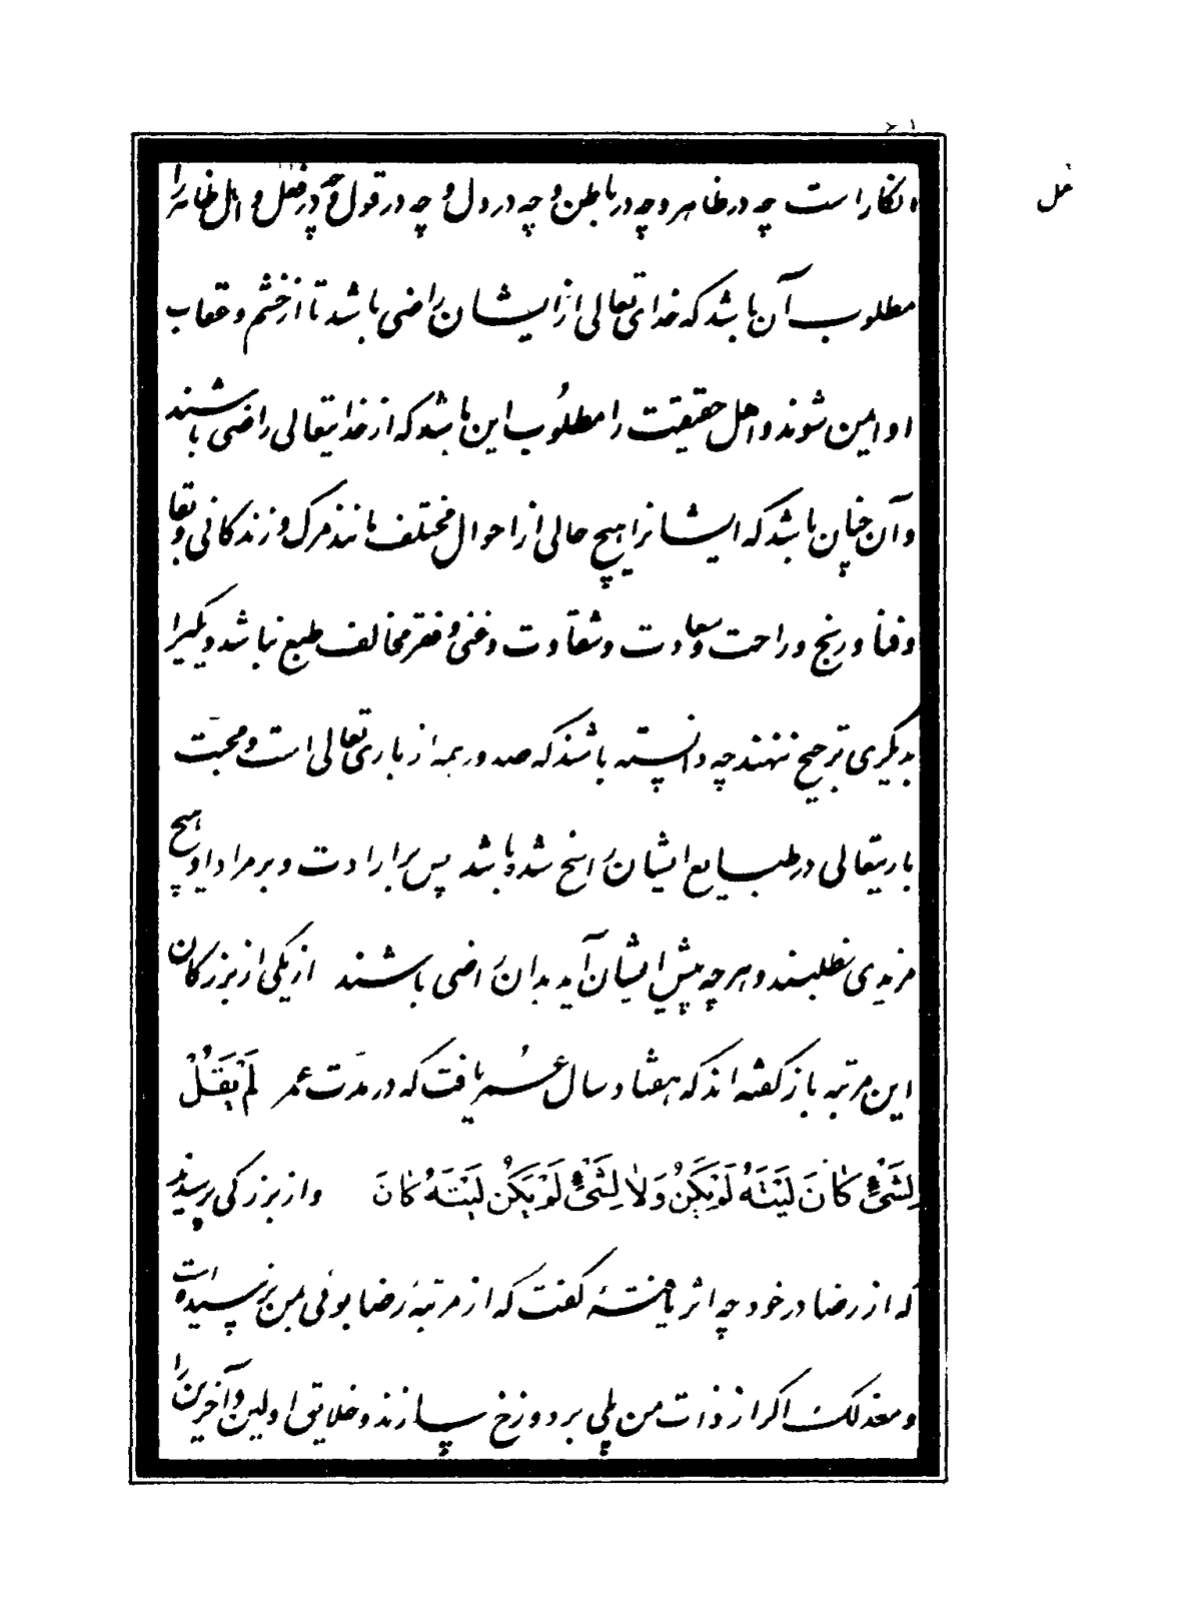 انکار است چه در ظاهر و چه در باطن و چه در دل و چه در قول و چه در فعل و اهل ظاهر را
مطلوب آن باشد که خدای تعالی از ایشان راضی باشد تا از خشم و عقاب
او ایمن شوند و اهل حقیقت را مطلوب این باشد که از خدایتعالی راضی باشند
و آن چنان باشد که ایشانرا هیچ حالی از احوال مختلف مانند مرک و زندکانی و بقا
و فنا و رنج و راحت و سعادت و شقاوت و غنی و فقر مخالف طبع نباشد و یکیرا
بدیکری ترجیح ننهند چه دانسته باشند که صدور همه از باری تعالی است و محبّت
باریتعالی در طبایع ایشان راسخ شده باشد پس بر ارادت و بر مراد او هیچ
مزیدی نطلبند و هر چه پیش ایشان آید بدان راضی باشند از یکی از بزرکان
این مرتبه باز کفته اند که هفتاد سال عُمر یافت که در مدّت عمر لَمْ يَقُلْ
لِشَیْءٍ کَانَ لَيْتَهُ لَمْ يَكُنْ وَلا لِشَیْءٍ لَمْ يَكُنْ لَيْتَهُ كَانَ و از بزرکی پرسیدند
که از رضا در خود چه اثر یافتهٔ کفت که از مرتبهٔ رضا بوئی بمن نرسیده است
و معذلک اکر از ذات من پلی بر دوزخ سازند و خلایق اولین و آخرین را